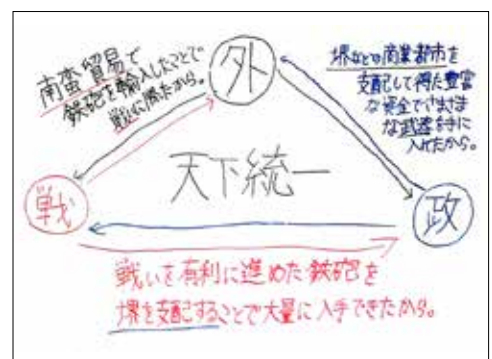 外
南蛮貿易で
鉄砲を輸入したことで
戦に勝たから。
堺などの商業都市を
支配して得た豊富
な資金でさまざま
な武器を手に
入れたから。
天下統一
戦
政
戦いを有利に進めた鉄砲を
堺を支配することで大量に入手できたから。